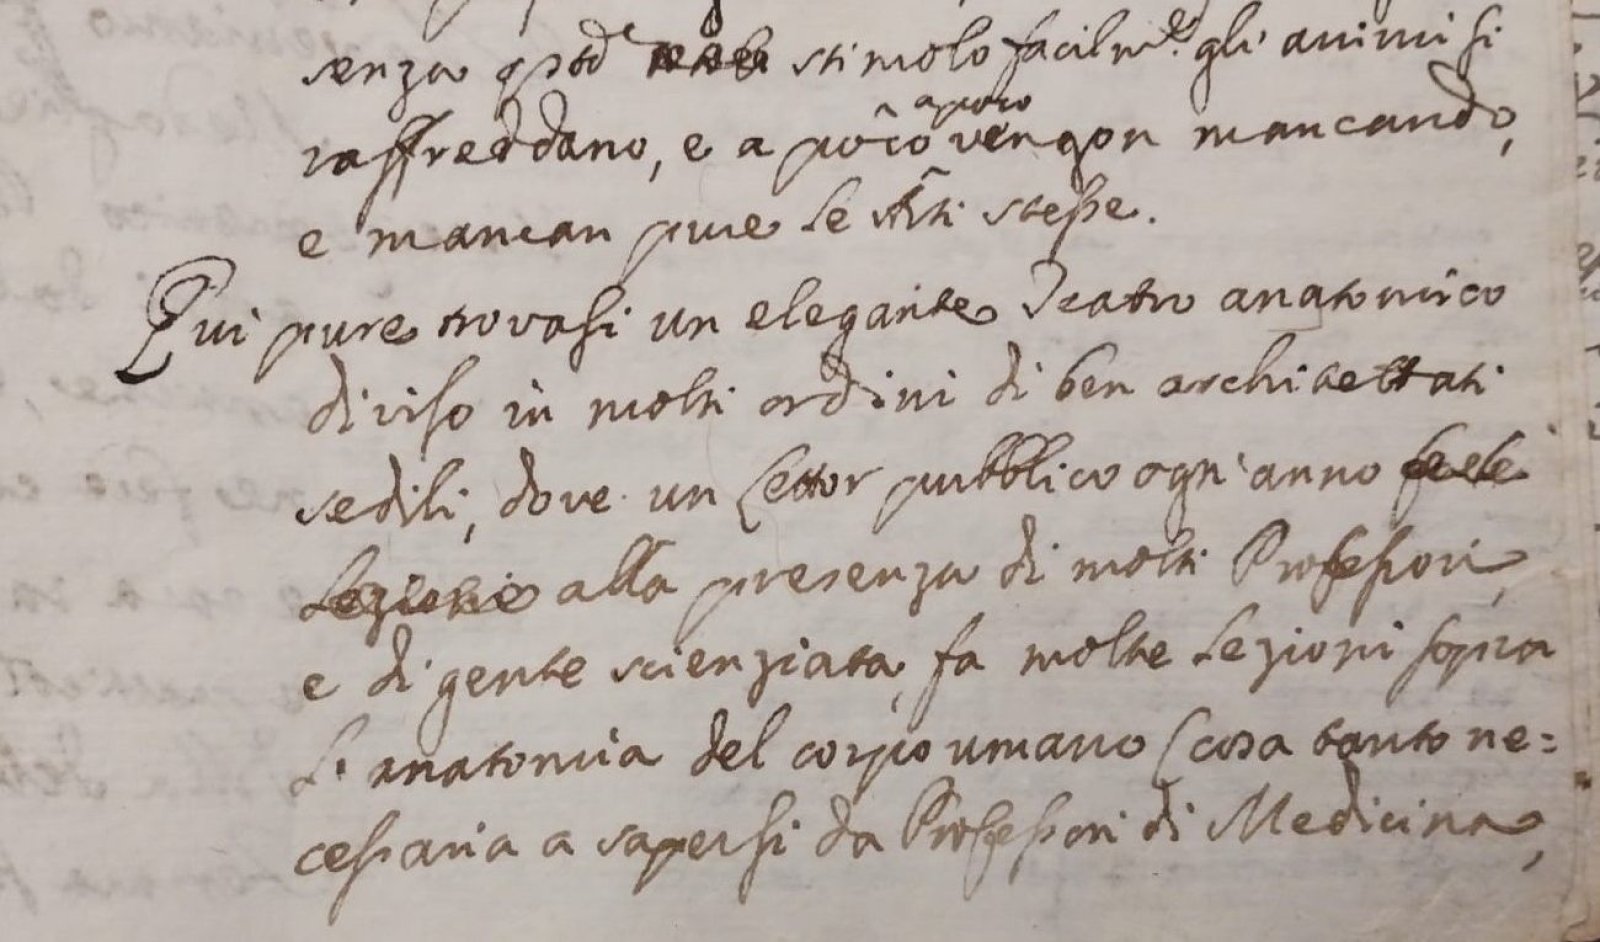 senza stimolo facilm.e gli animi si
raffreddano, e a poco a poco vengon mancando,
e mancan pure le Arti stesse.
Qui pure trovasi un elegante Teatro anatomico
diviso in molti ordini di ben architettati
sedili, dove un Lettor pubblico ogn'anno
alla presenza di molti Professori,
e di gente scienziata, fa molte lezioni sopra
l'anatomia del corpo umano (cosa tanto ne=
cessaria a sapersi da Professori di Medicina,